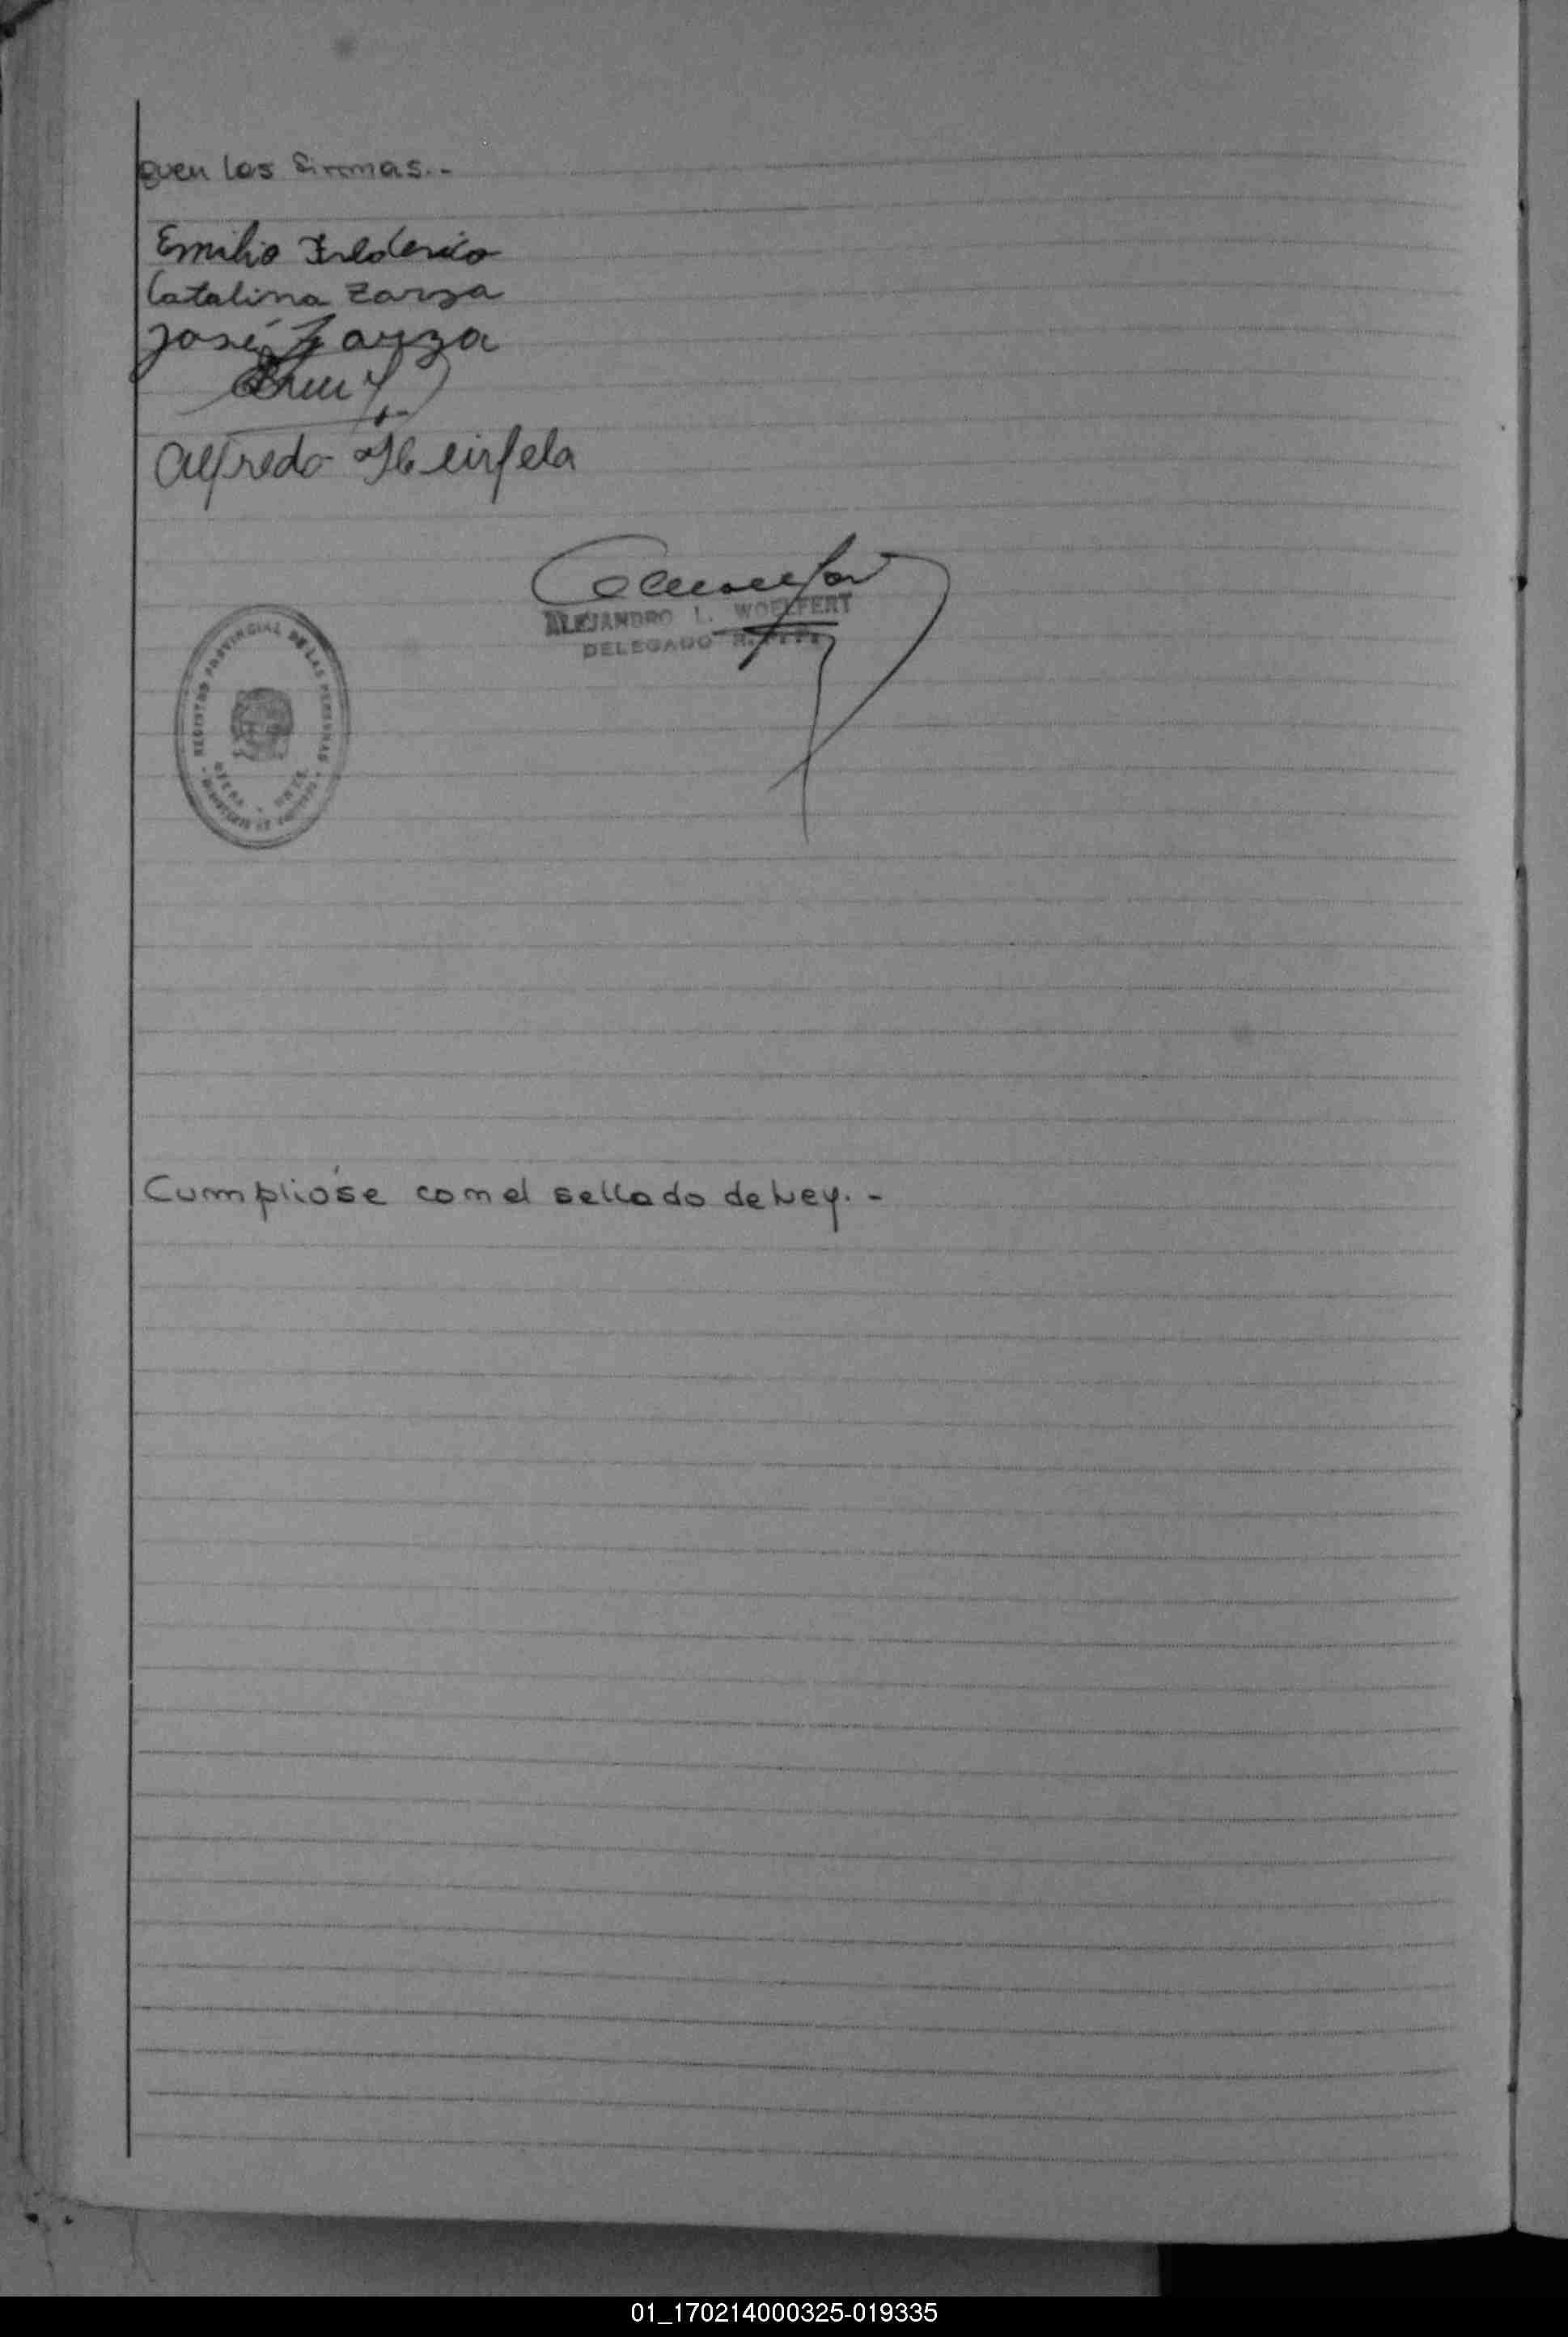 guen las firmas.-
Emilio Frederico
Catalina Zarza
José Zarza
Alfredo
ALEJANDRO L. WOELFERT
DELEGADO R.P.P.
REGISTRO PROVINCIAL DE LAS PERSONAS
Cumplióse con el sellado de Ley.-
01_170214000325-019335